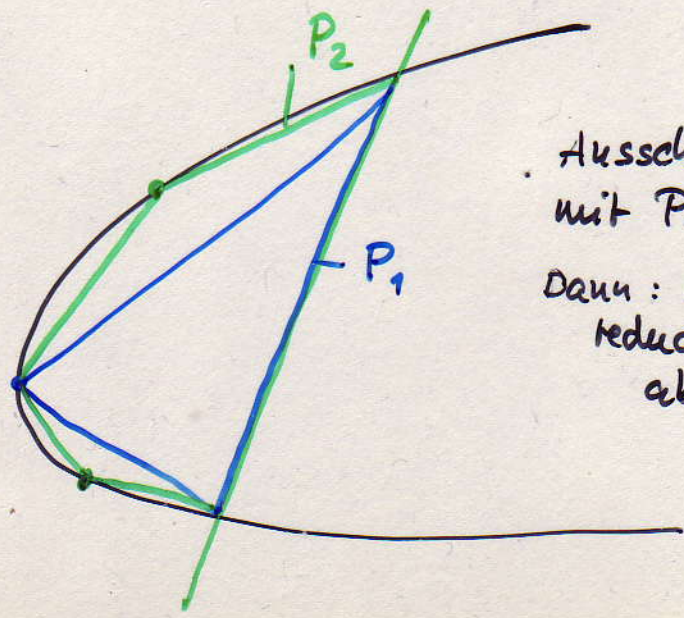 P₂
Aussch
mit P
P₁
Dann:
reduc
ab